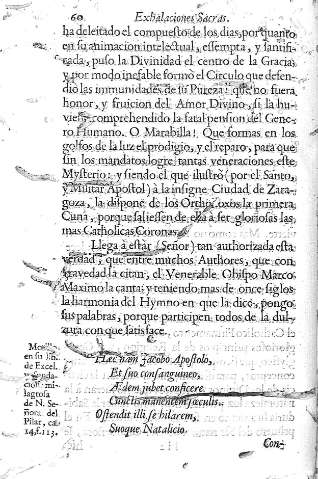 60 Exhalaciones Sacras.
ha deleitado el compuesto de los dias, por quanto
en su animacion intelectual, essempta, y santifi-
cada, puso la Divinidad el centro de la Gracia,
y por modo inefable formò el Circulo que defen-
dio las immunidades de su Pureza: què no fuera
honor, y fruicion del Amor Divino, si la hu-
viera comprehendido la fatal pension del Gene-
ro Humano. O Marabilla! Que formas en los
golfos de la luz el prodigio, y el reparo, para que
sin los mandatos logre tantas veneraciones este
Mysterio: y siendo el que ilustrò (por el Santo,
y Militar Apostol) à la insigne Ciudad de Zara-
goza, la dispone de los Orthodoxos la primera
Cuna, porque saliessen de ella à ser gloriosas las
mas Catholicas Coronas.
Llega à estàr (Señor) tan authorizada esta
verdad, que entre muchos Authores, que con
gravedad la citan, el Venerable Obispo Marco
Maximo la canta; y teniendo mas de once siglos
la harmonia del Hymno en que la dice, pongo
sus palabras, porque participen todos de la dul-
zura con que satisface.
Hæc nam Jacobo Apostolo,
Et suo consanguineo,
Ædem jubet conficere
Cunctis manentem sæculis.
Ostendit illi se hilarem,
Suoque Natalicio.
en su
de Excel.
mi-
lagrosa
de N. Se-
ñora del
Pilar, ca.
14, f. 113.
Con-